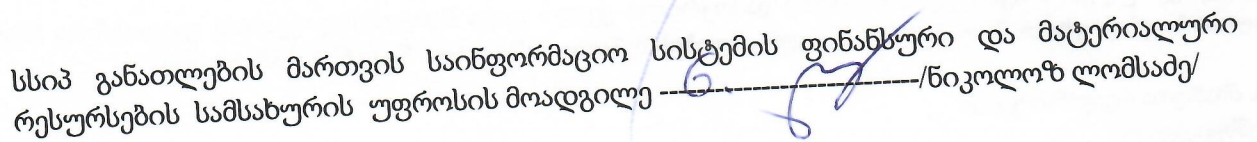 სსიპ განათლების მართვის საინფორმაციო სისტემის ფინანსური და მატერიალური
რესურსების სამსახურის უფროსის მოადგილე ----------------------------/ნიკოლოზ ლომსაძე/